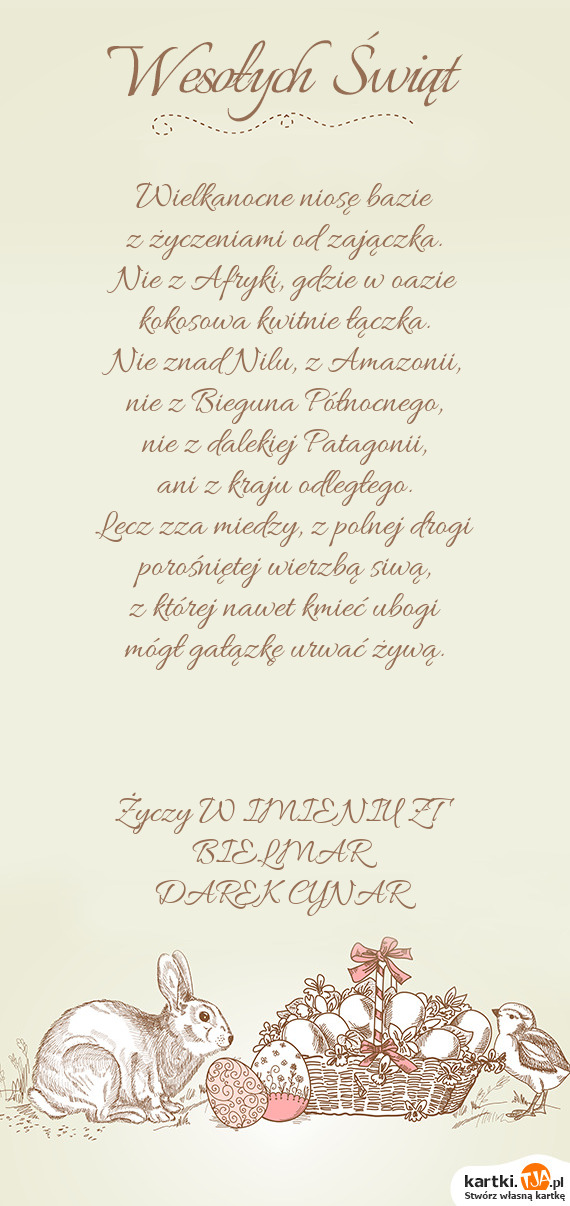 Wesołych Świąt
Wielkanocne niosę bazie
z życzeniami od zajączka.
Nie z Afryki, gdzie w oazie
kokosowa kwitnie łączka.
Nie znad Nilu, z Amazonii,
nie z Bieguna Północnego,
nie z dalekiej Patagonii,
ani z kraju odległego.
Lecz zza miedzy, z polnej drogi
porośniętej wierzbą siwą,
z której nawet kmieć ubogi
mógł gałązkę urwać żywą.
Życzy W IMIENIU ZT
BIELMAR
DAREK CYNAR
kartki.TJA.pl
Stwórz własną kartkę